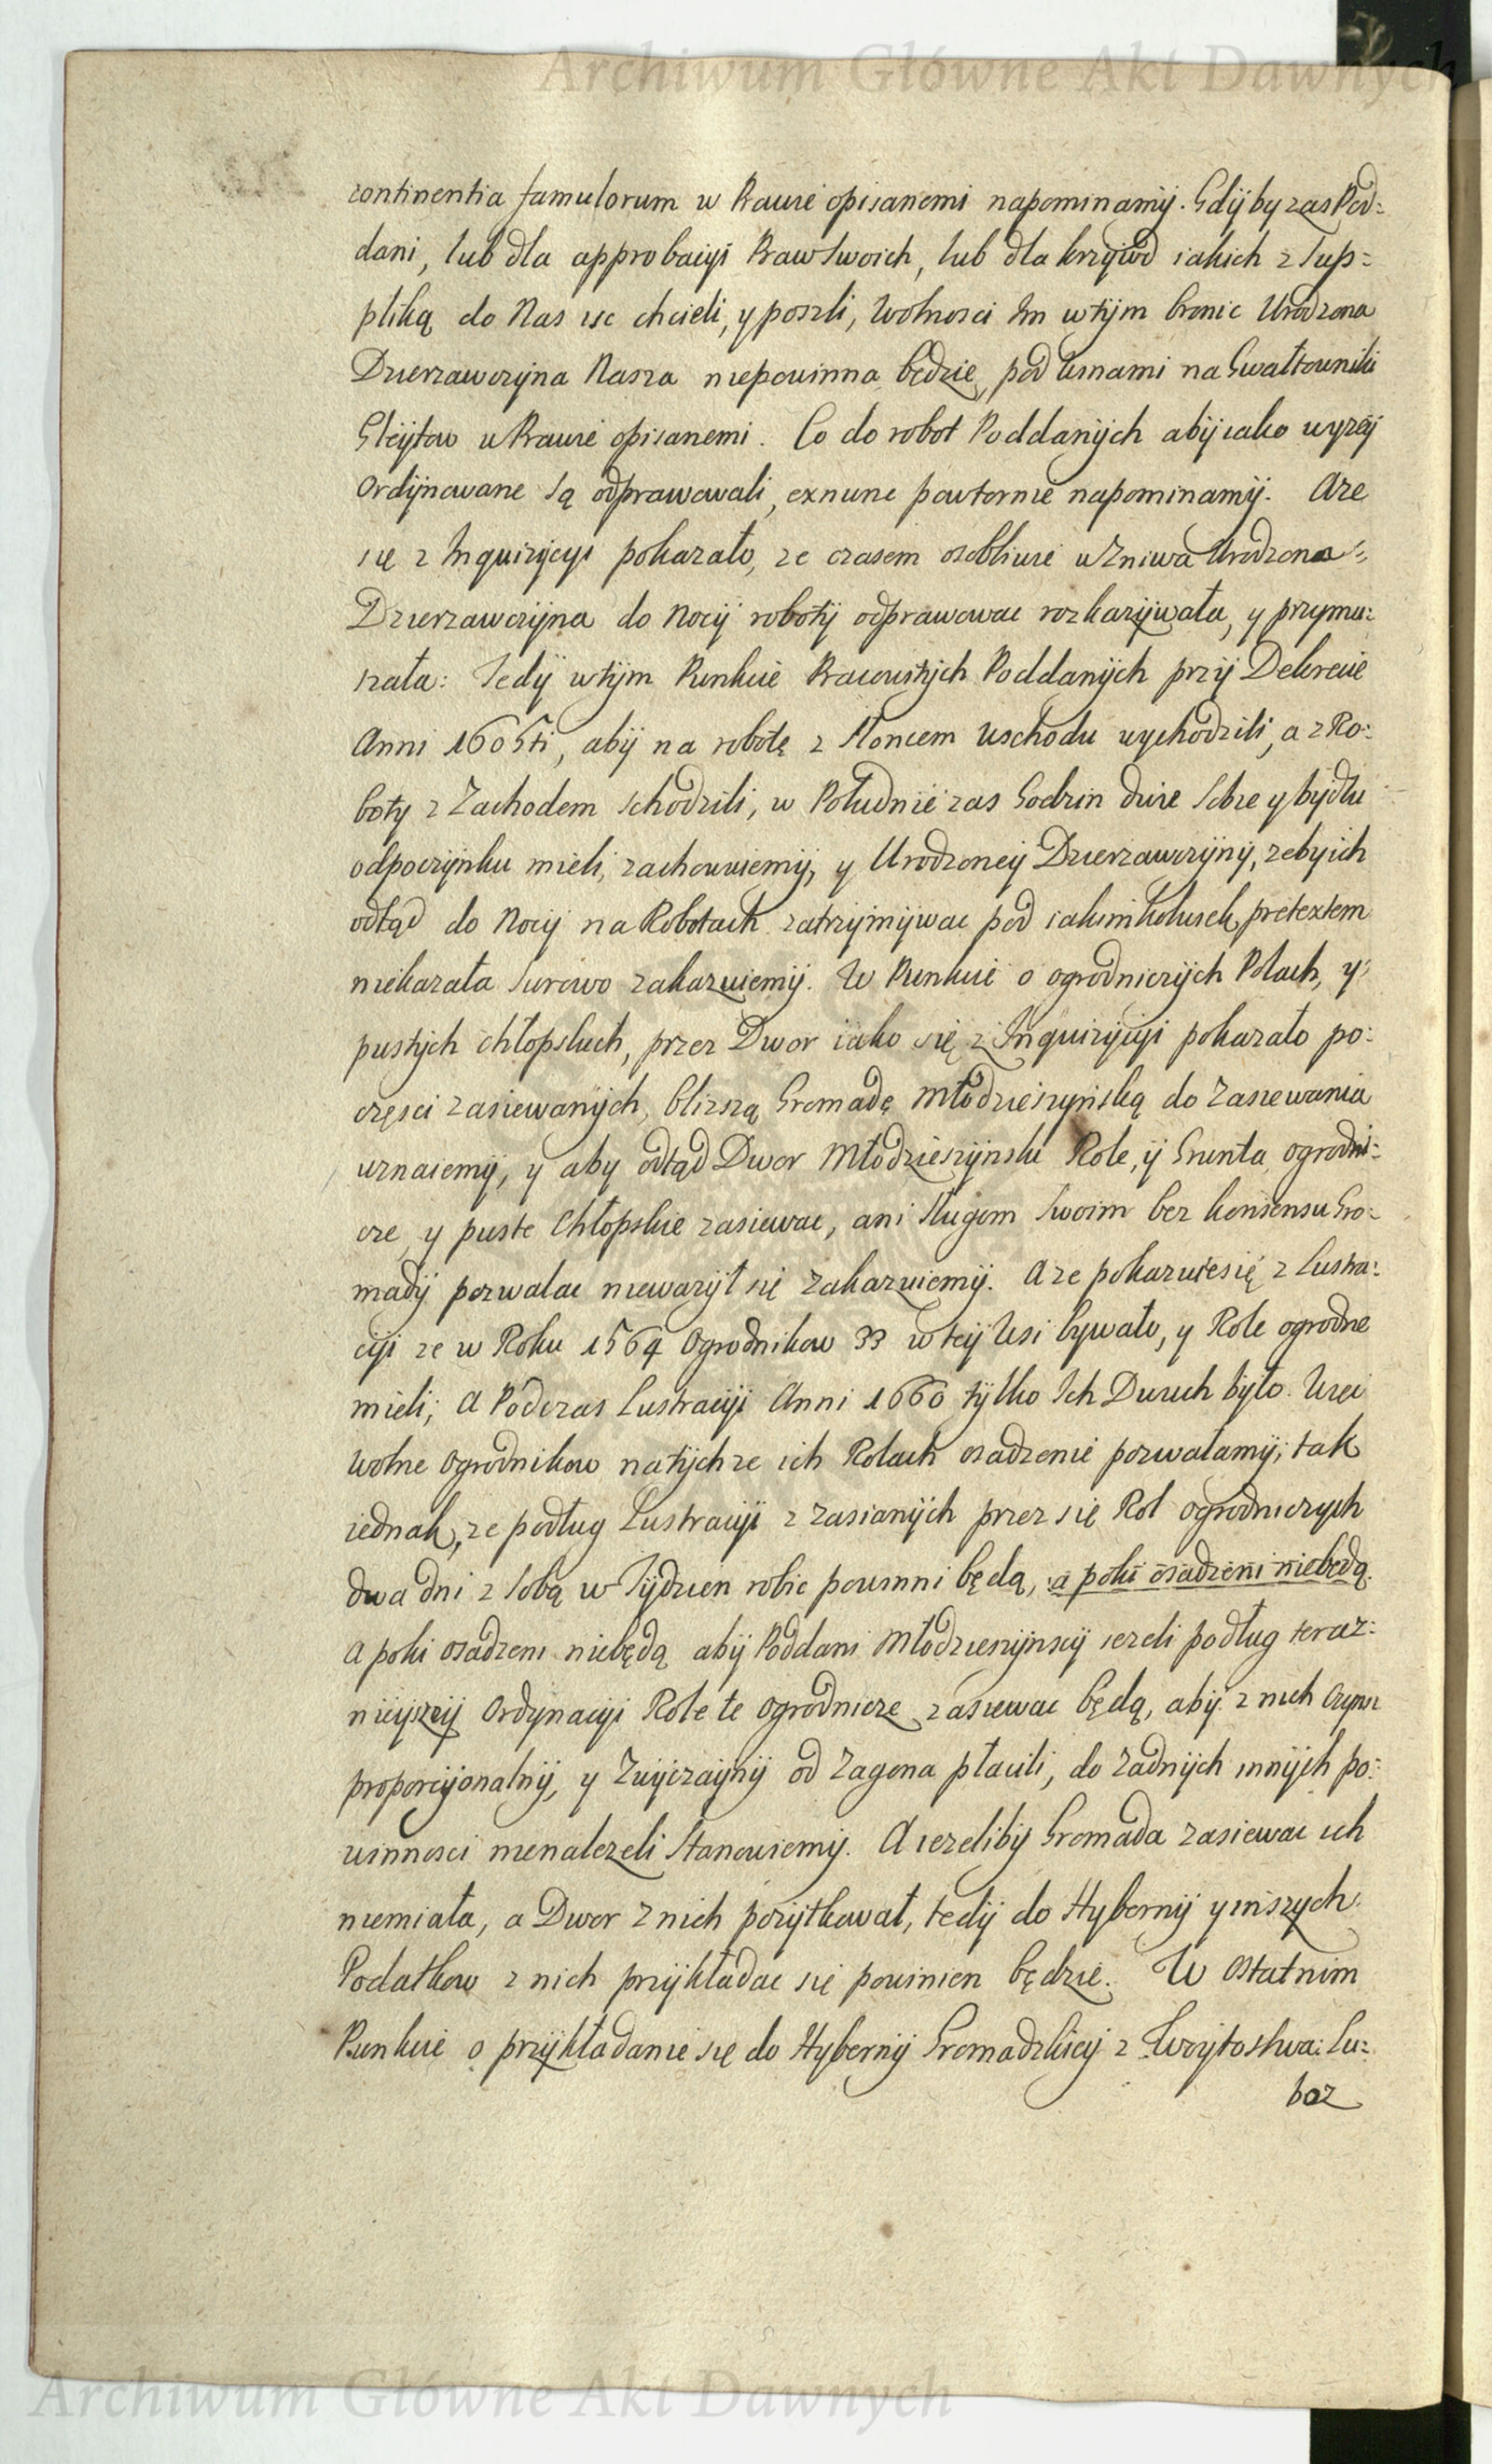 Archiwum Główne Akt Dawnych
continentia famulorum w Prawie opisanemi napominamÿ. Gdÿby zas Pod=
dani, lub dla approbacÿi Praw Swoich, lub dla krzÿwd iakich z Sup=
pliką do Nas isc chcieli, y poszli, Wolnosci Im wtÿm bronic Urodzona
Dzierzawczÿna Nasza niepowinna będzie, pod winami na Gwałtowniki
Gleÿtow w Prawie opisanemi. Co do robot Poddanÿch abÿ iako wyzeÿ
Ordÿnowane są odprawowali, exnunc powtornie napominamÿ. A ze
się z Inquizÿcÿi pokazało, ze czasem osobliwie w Zniwa Urodzona=
Dzierzawczÿna do Nocÿ robotÿ odprawowac rozkazÿwała, y przymu=
szała: Tedÿ wtÿm Punkcie Pracowitÿch Poddanÿch przÿ Dekrecie
Anni 1605ti, abÿ na robotę z Słoncem Wschodu wychodzili, a z Ro=
boty z Zachodem schodzili, w Południe zas Godzin dwie Sobie y bÿdłu
odpoczÿnku mieli, zachowuiemÿ, y Urodzoneÿ Dzierzawczÿnÿ, zebÿ ich
odtąd do Nocÿ na Robotach zatrzÿmÿwac pod iakimkolwiek pretextem
niekazała surowo zakazuiemÿ. W Punkcie o ogrodniczÿch Polach, y
pustÿch chłopskich, przez Dwor iako się z Inquizÿcÿi pokazało po=
częsci zasiewanÿch, blizszą Gromadę Młodzieszÿnską do Zasiewania
uznaiemÿ, y aby odtąd Dwor Młodzieszÿnski Role, ÿ Grunta ogrodni=
cze, y puste Chłopskie zasiewac, ani Sługom Swoim bez konsensu Gro=
madÿ pozwalac niewazÿł się Zakazuiemÿ. A ze pokazuie się z Lustra=
cÿi ze w Roku 1564 Ogrodnikow 33 w teÿ Wsi bywało, y Role ogrodne
mieli; A Podczas Lustracÿi Anni 1660 tÿlko Ich Dwuch było. Więc
Wolne Ogrodnikow na tÿchze ich Rolach osadzenie pozwalamÿ; tak
iednak, ze podług Lustracÿi z zasianÿch przez się Rol ogrodniczych
dwa dni z Sobą w Tÿdzien robic powinni będą, a poki osadzeni niebędą.
A poki osadzeni niebędą abÿ Poddani Młodzieszÿnscÿ iezeli podług teraz=
nieÿszeÿ Ordÿnacÿi Role te ogrodnicze zasiewac będą, abÿ z nich Czynsz
proporcÿonalnÿ, y Zwÿczaÿnÿ od Zagona płacili, do Zadnÿch innÿch po=
winnosci nienalezeli Stanowiemÿ. A iezelibÿ Gromada zasiewac ich
niemiała, a Dwor z nich pozÿtkował, tedÿ do Hybernÿ y inszych
Podatkow z nich przÿkładac się powinien będzie. W Ostatnim
Punkcie o przÿkładanie się do Hybernÿ Gromadzkieÿ z Woÿtostwa: Lu=
boz
Archiwum Główne Akt Dawnych